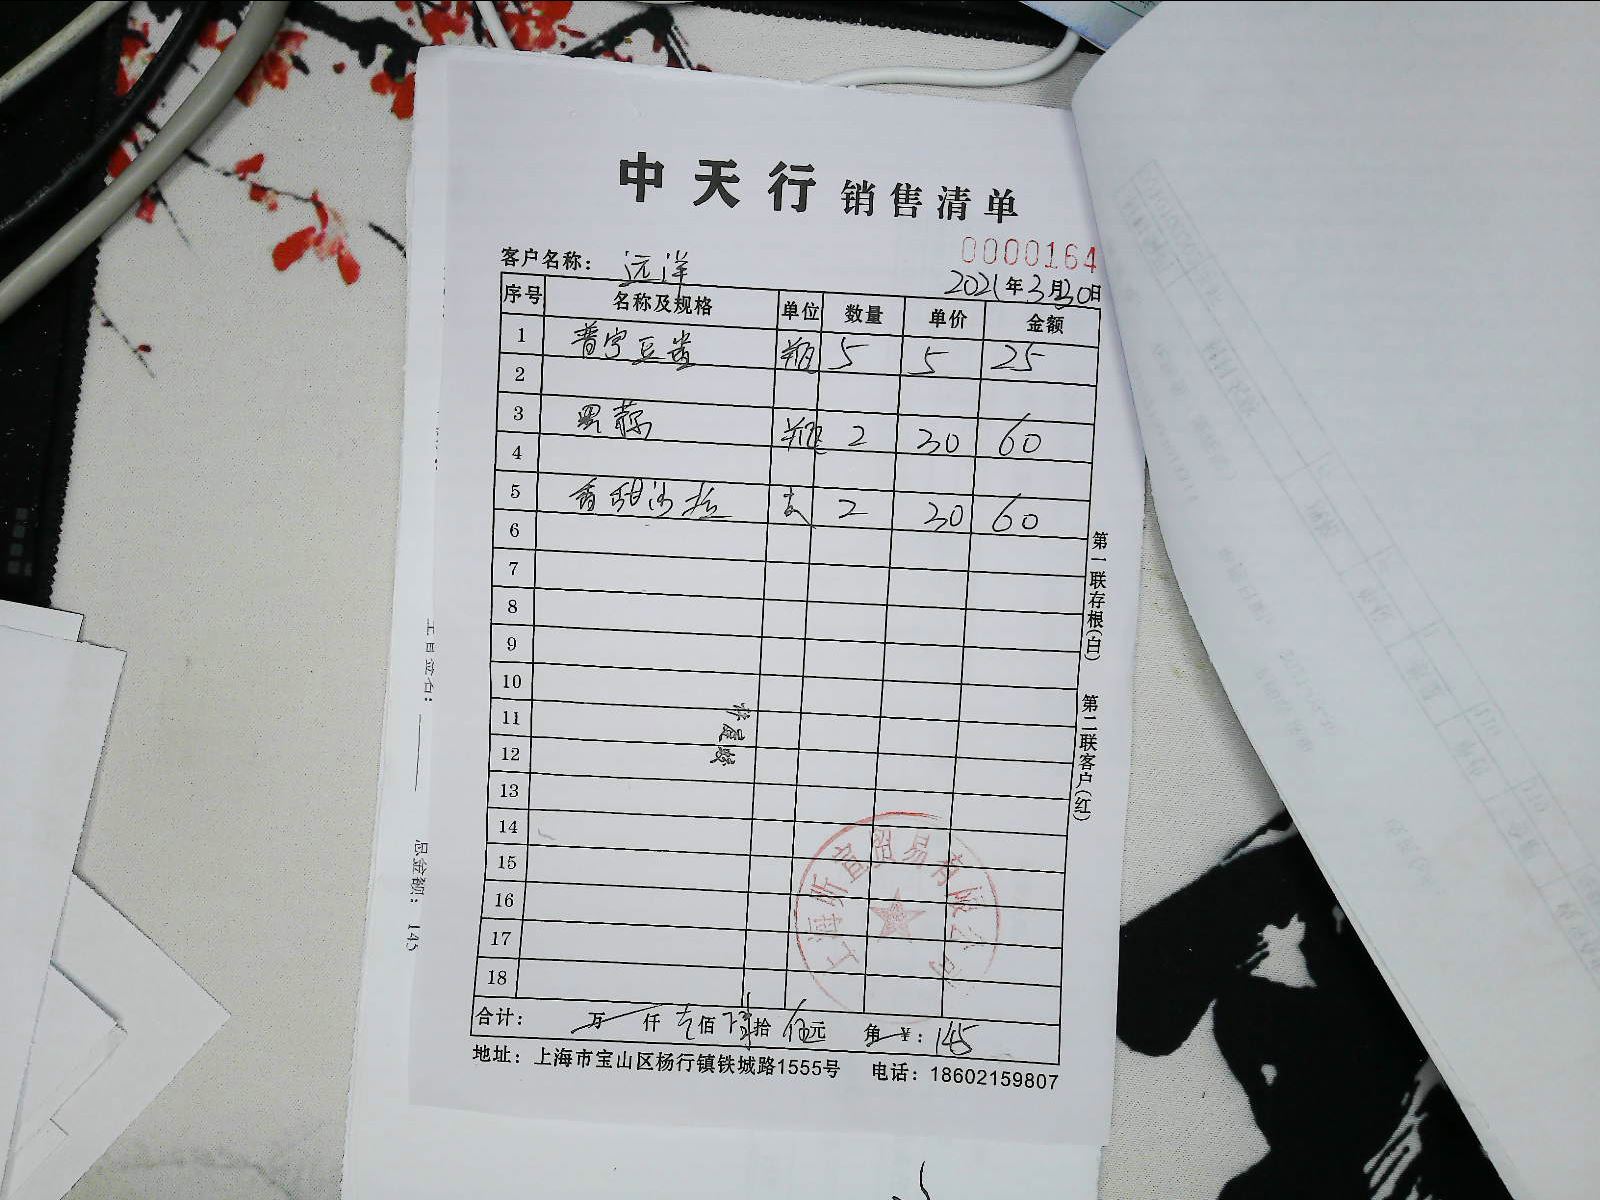 中天行 销售清单
0000164
客户名称： 远洋
2021年3月30日
序号 名称及规格 单位 数量 单价 金额
1 普宁豆酱 瓶 5 5 25
2
3 瓶 2 30 60
4
5 香甜沙拉 支 2 30 60
6
7
8
9
10
11
12
13
14
15
16
17
18
合计： 万 仟 壹佰 肆拾 伍元 角 ¥： 145
地址：上海市宝山区杨行镇铁城路1555号 电话：18602159807
第一联存根(白) 第二联客户(红)
上海昕宜贸易有限公司
总金额： 145